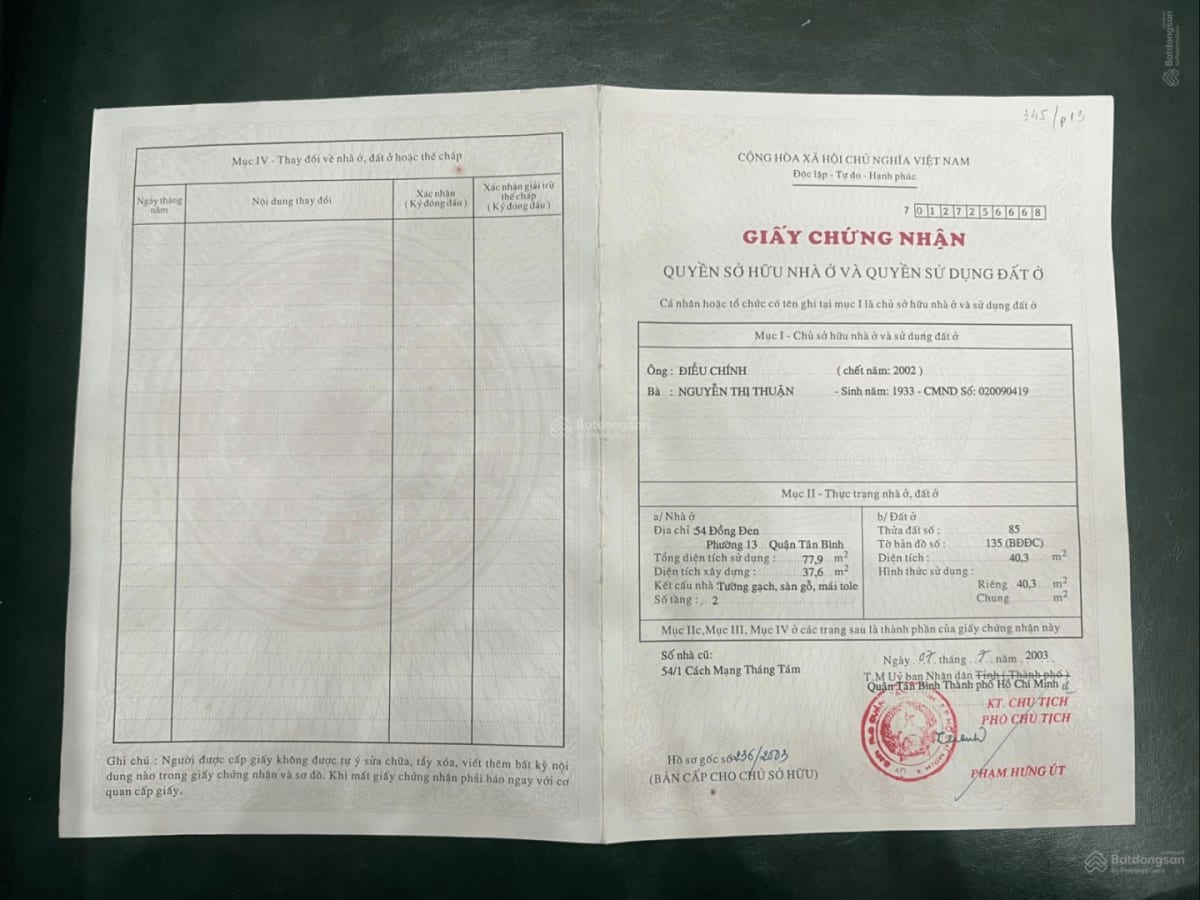 Mục IV - Thay đổi về nhà ở, đất ở hoặc thế chấp
Ngày tháng năm
Nội dung thay đổi
Xác nhận
( Ký đóng dấu )
Xác nhận giải trừ thế chấp
( Ký đóng dấu )
Ghi chú : Người được cấp giấy không được tự ý sửa chữa, tẩy xóa, viết thêm bất kỳ nội
dung nào trong giấy chứng nhận và sơ đồ. Khi mất giấy chứng nhận phải báo ngay với cơ
quan cấp giấy.
345/p13
CỘNG HÒA XÃ HỘI CHỦ NGHĨA VIỆT NAM
Độc lập - Tự do - Hạnh phúc
7 0127256668
GIẤY CHỨNG NHẬN
QUYỀN SỞ HỮU NHÀ Ở VÀ QUYỀN SỬ DỤNG ĐẤT Ở
Cá nhân hoặc tổ chức có tên ghi tại mục I là chủ sở hữu nhà ở và sử dụng đất ở
Mục I - Chủ sở hữu nhà ở và sử dụng đất ở
Ông : ĐIỂU CHÍNH ( chết năm: 2002 )
Bà : NGUYỄN THỊ THUẬN - Sinh năm: 1933 - CMND Số: 020090419
Mục II - Thực trạng nhà ở, đất ở
a/ Nhà ở
Địa chỉ 54 Đồng Đen
Phường 13 Quận Tân Bình
Tổng diện tích sử dụng : 77,9 m2
Diện tích xây dựng : 37,6 m2
Kết cấu nhà Tường gạch, sàn gỗ, mái tole
Số tầng : 2
b/ Đất ở
Thửa đất số : 85
Tờ bản đồ số : 135 (BĐĐC)
Diện tích : 40,3 m2
Hình thức sử dụng :
Riêng 40,3 m2
Chung m2
Mục IIc, Mục III, Mục IV ở các trang sau là thành phần của giấy chứng nhận này
Số nhà cũ:
54/1 Cách Mạng Tháng Tám
Ngày 07 tháng 7 năm 2003
T.M Uỷ ban Nhân dân Tỉnh ( Thành phố )
Quận Tân Bình Thành phố Hồ Chí Minh
KT. CHỦ TỊCH
PHÓ CHỦ TỊCH
PHẠM HƯNG ÚT
Hồ sơ gốc số 236/2003
(BẢN CẤP CHO CHỦ SỞ HỮU)
Batdongsan
by PropertyGuru
Batdongsan
Batdongsan
by PropertyGuru